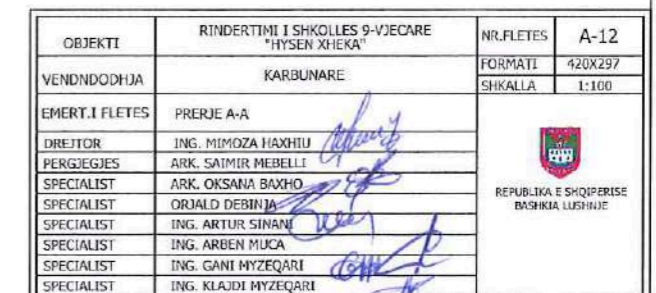 OBJEKTI
RINDERTIMI I SHKOLLES 9-VJECARE
"HYSEN XHEKA"
NR.FLETES
A-12
VENDNDODHJA
KARBUNARE
FORMATI
420X297
SHKALLA
1:100
EMERT.I FLETES
PRERJE A-A
DREJTOR
ING. MIMOZA HAXHIU
PERGJEGJES
ARK. SAIMIR MEBELLI
SPECIALIST
ARK. OKSANA BAXHO
SPECIALIST
ORJALD DEBINJA
SPECIALIST
ING. ARTUR SINANI
SPECIALIST
ING. ARBEN MUCA
SPECIALIST
ING. GANI MYZEQARI
SPECIALIST
ING. KLAJDI MYZEQARI
REPUBLIKA E SHQIPERISE
BASHKIA LUSHNJE